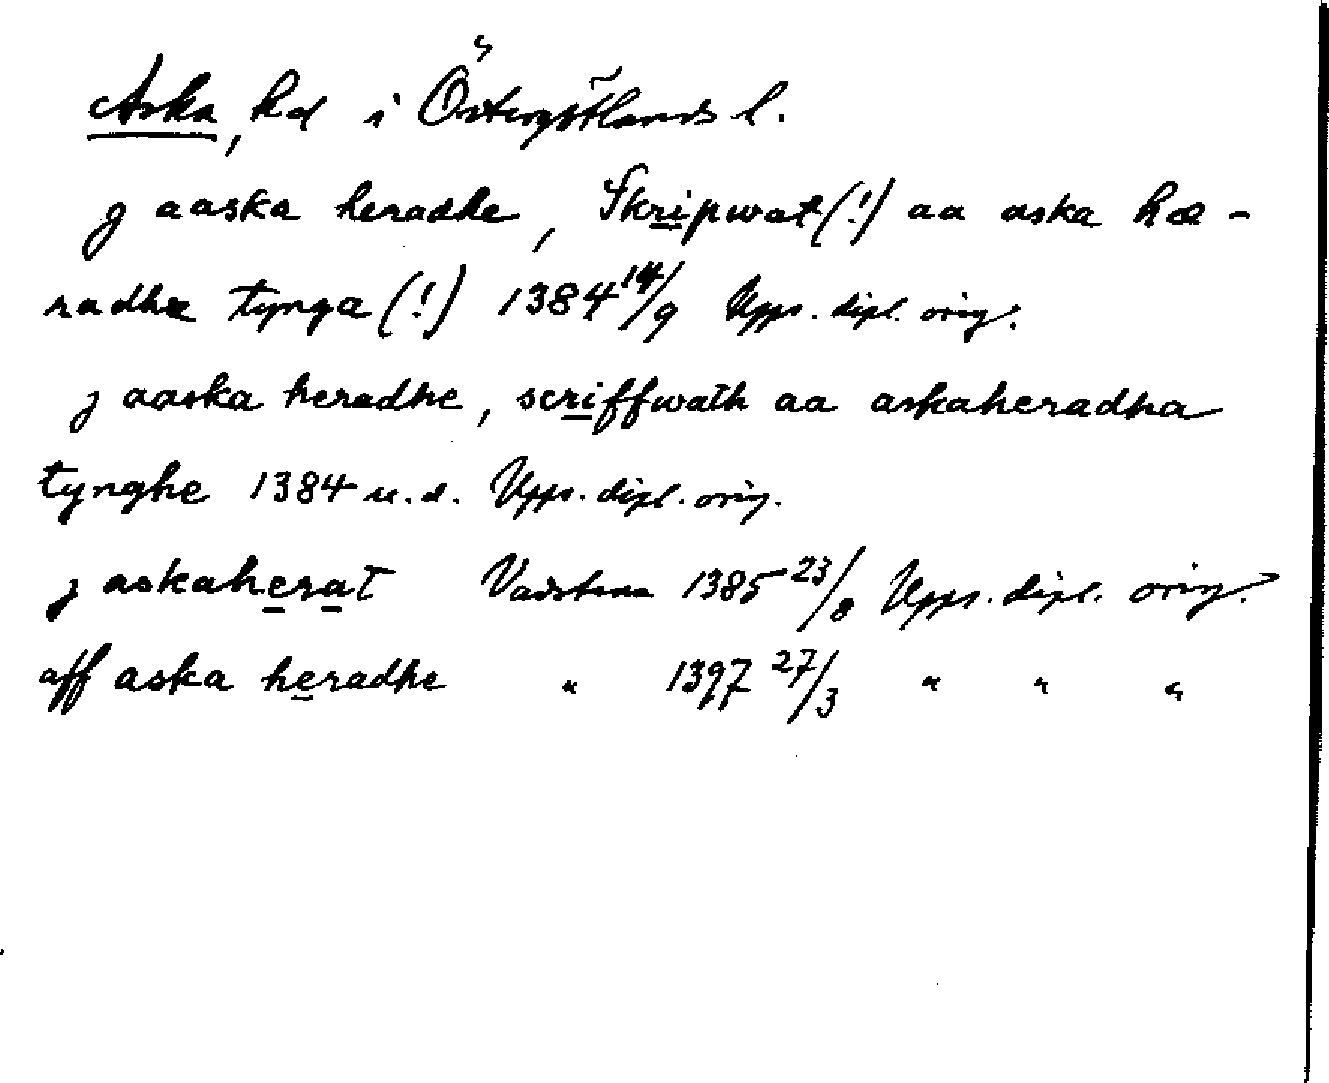 Aska, hd i Östergötlands l.
j aaska heradhe, Skripwat(!) aa aska hæ-
radhe tynga(!) 1384 14/9 Upps. dipl. orig.
j aaska heradhe, scriffwath aa askaheradha
tynghe 1384 u.d. Upps. dipl. orig.
j askaherat Vadstena 1385 23/8 Upps. dipl. orig.
aff aska heradhe " 1397 27/3 " " "